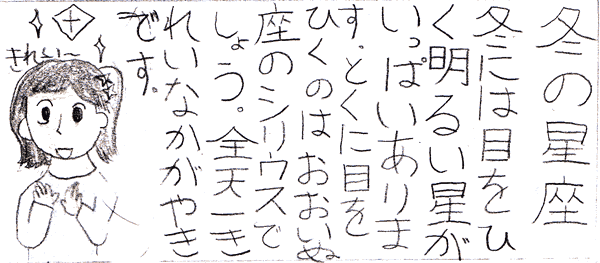 冬の星座
冬には目をひ
く明るい星が
いっぱいありま
す。とくに目を
ひくのはおおいぬ
座のシリウスで
しょう。全天一き
れいなかがやき
です。
きれい〜